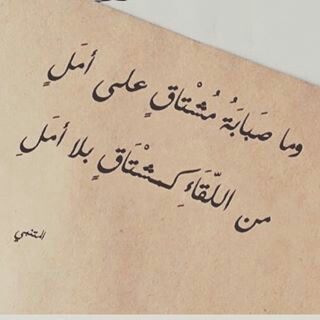 وما صَبَابَةُ مُشْتاقٍ على أمَلٍ
من اللّقَاءِ كمُشْتَاقٍ بلا أمَلِ
المتنبي